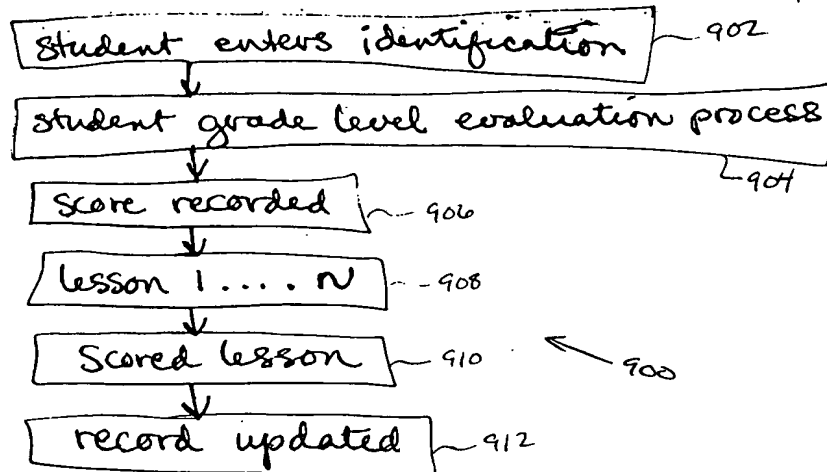 student enters identification 902
student grade level evaluation process
904
score recorded 906
lesson 1 .... N 908
scored lesson 910
900
record updated 912